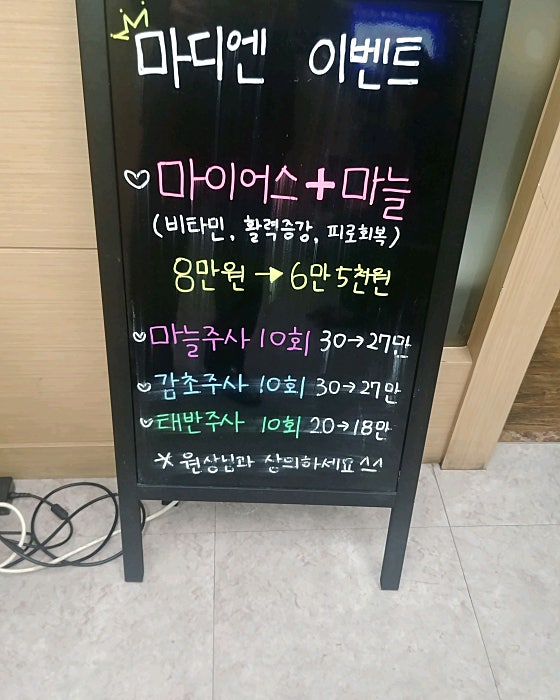 마디엔 이벤트
♡ 마이어스 + 마늘
(비타민, 활력증강, 피로회복)
8만원 → 6만 5천원
♡ 마늘주사 10회 30→27만
♡ 감초주사 10회 30→27만
♡ 태반주사 10회 20→18만
* 원상님과 상의하세요 ^^